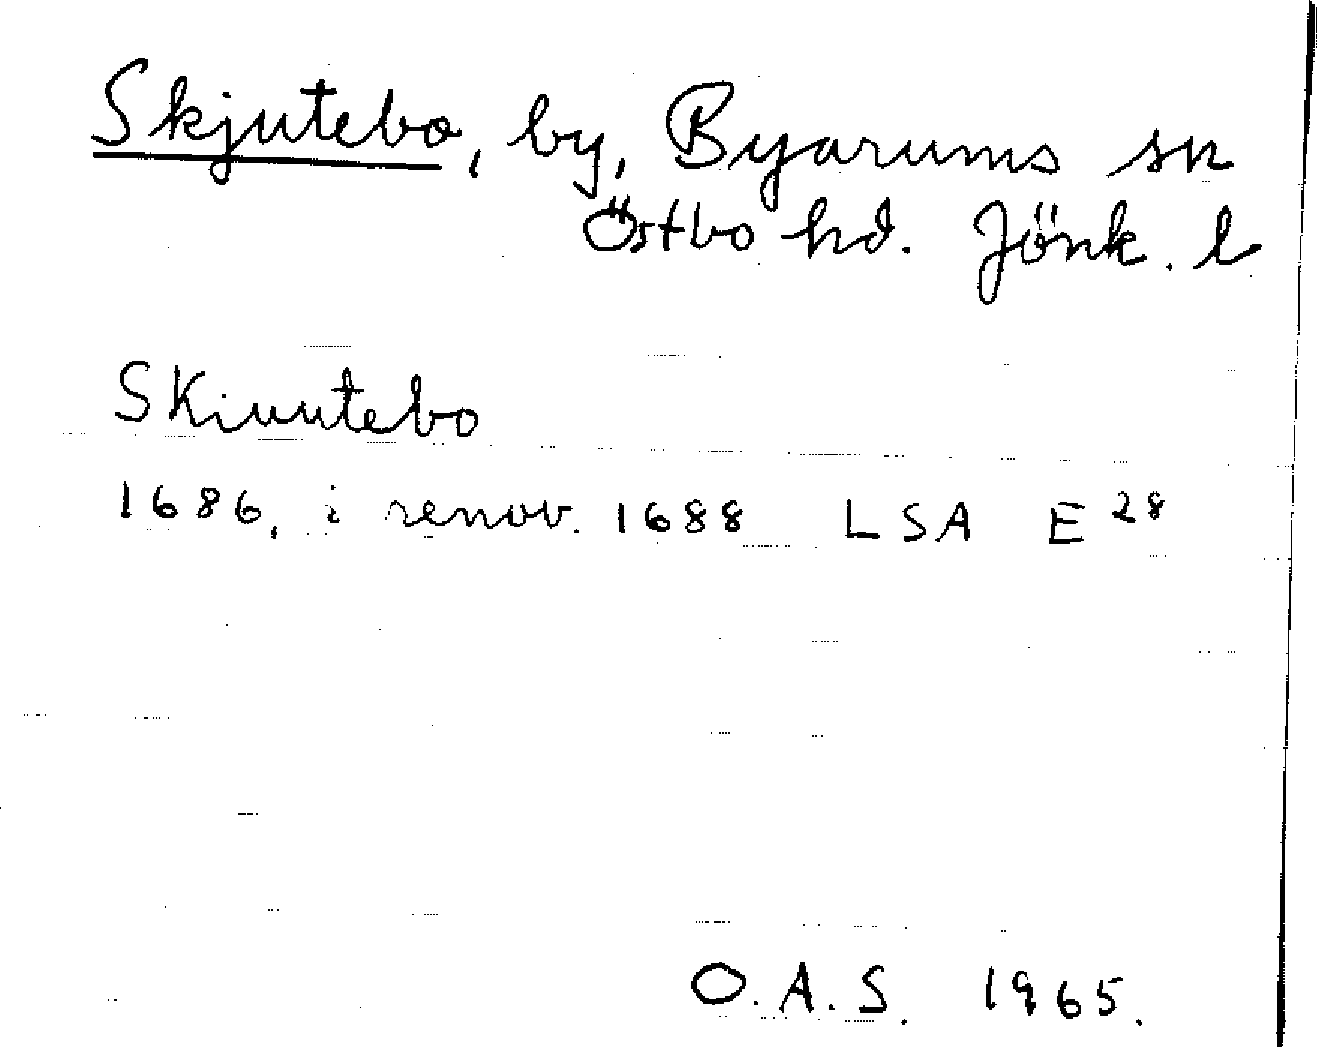 Skjutebo, by, Byarums sn
Östbo hd. Jönk. l
Skiuutebo
1686, i renov. 1688 LSA E 28
O.A.S. 1965.